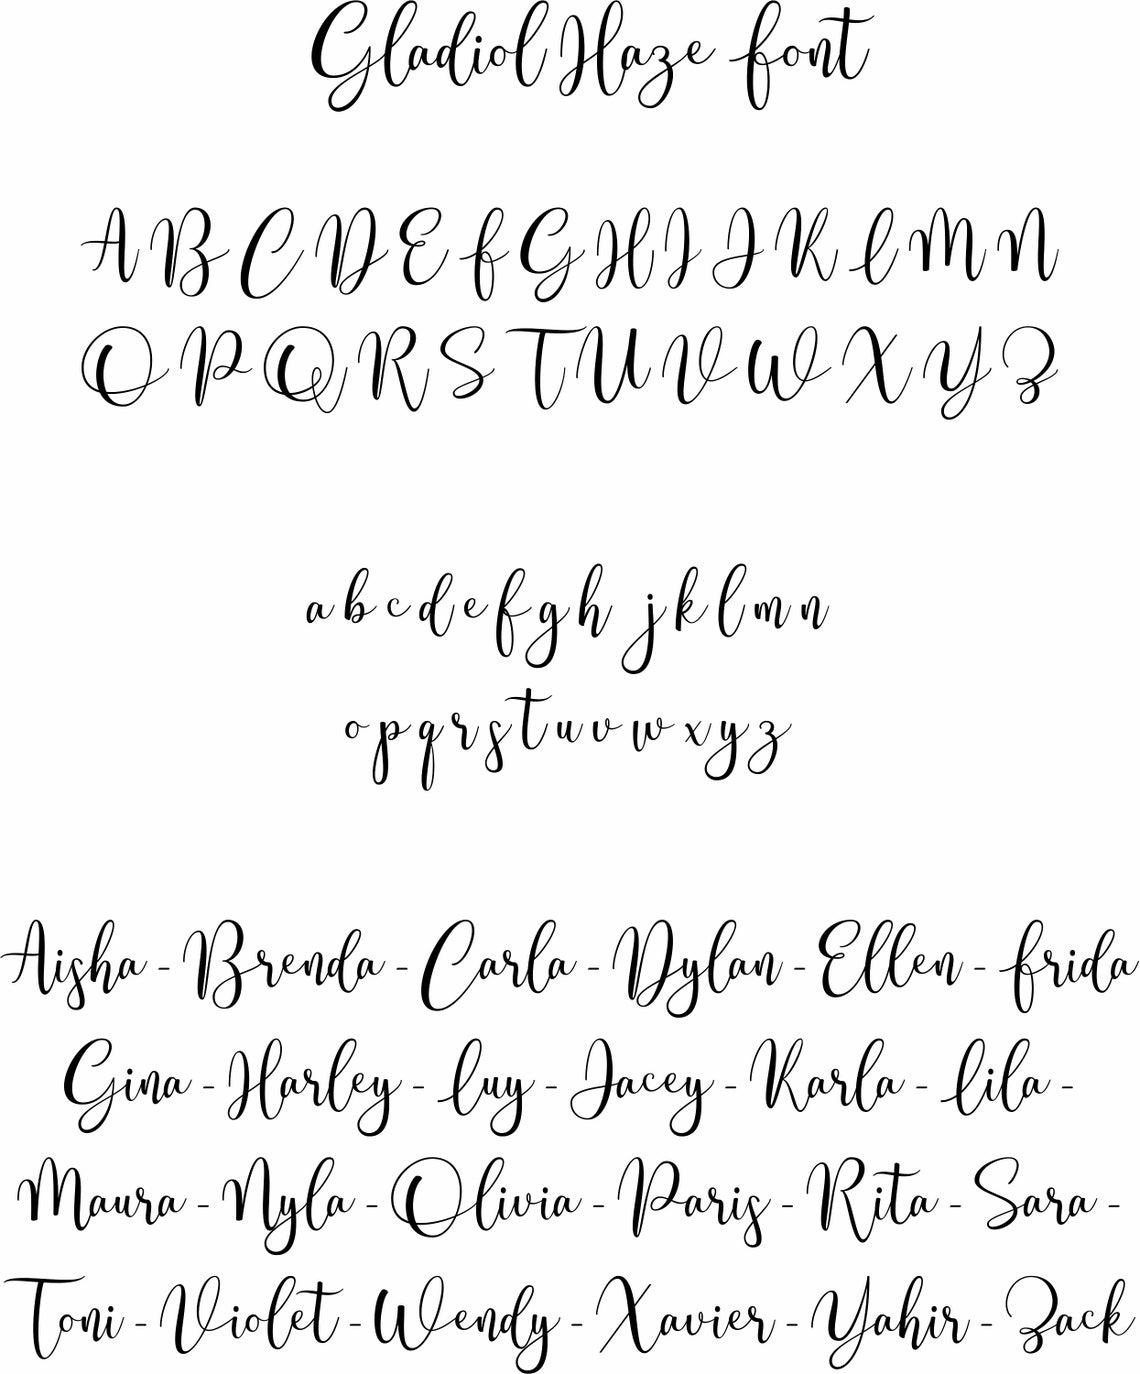 Gladiol Haze font
A B C D E f G H I J K L M N
O P Q R S T U V W X Y Z
a b c d e f g h j k l m n
o p q r s t u v w x y z
Aisha - Brenda - Carla - Dylan - Ellen - frida
Gina - Harley - Luy - Jacey - Karla - Lila -
Maura - Nyla - Olivia - Paris - Rita - Sara -
Toni - Violet - Wendy - Xavier - Yahir - Zack